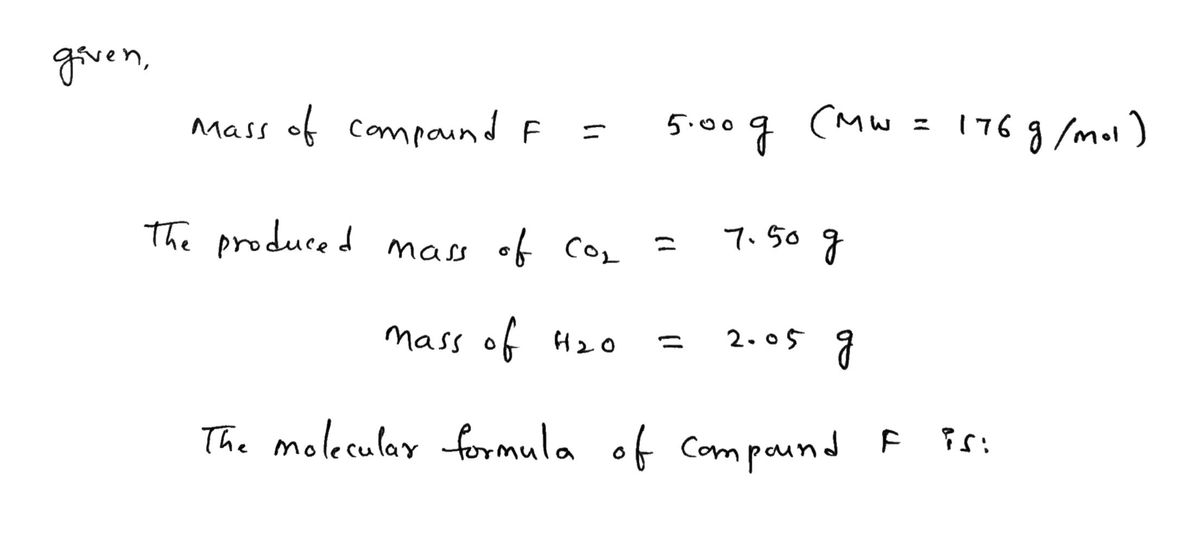 given,
Mass of compound F = 5.00 g (MW = 176 g/mol)
The produced mass of CO2 = 7.50 g
Mass of H2O = 2.05 g
The molecular formula of compound F is: